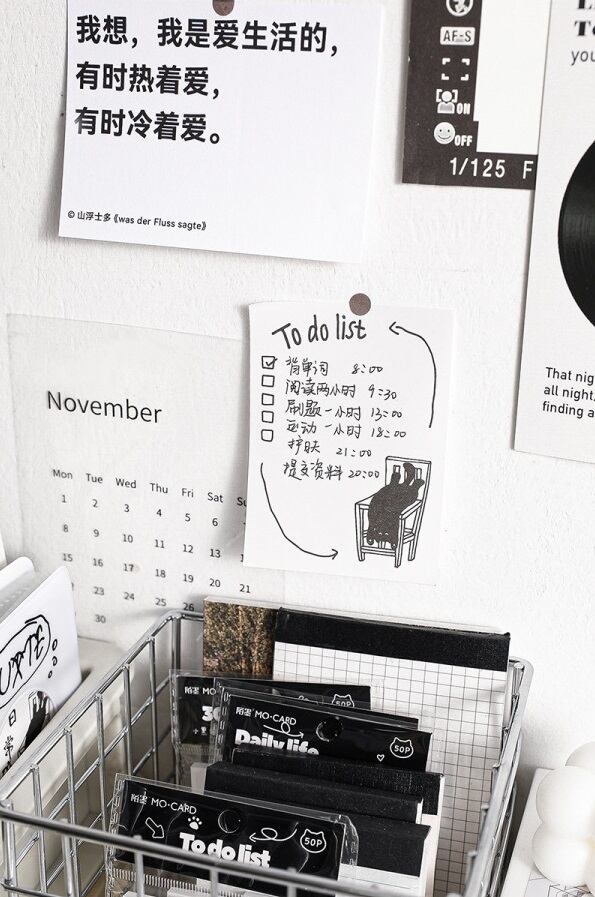 我想，我是爱生活的，
有时热着爱，
有时冷着爱。
© 山浮士多《was der Fluss sagte》
AF-S
ON
OFF
1/125 F
To
you
That nig
all night
finding a
To do list
背单词 8:00
阅读两小时 9:30
刷题一小时 13:00
运动一小时 18:00
护肤 21:00
提交资料 20:00
November
Mon Tue Wed Thu Fri Sat Su
1 2 3 4 5 6
8 9 10 11 12 13
15 16 17 18 19 20 21
23 24 25
30
MO-CARD
50P
MO-CARD
Daily life
50P
陌墨 MO-CARD
To do list
50P